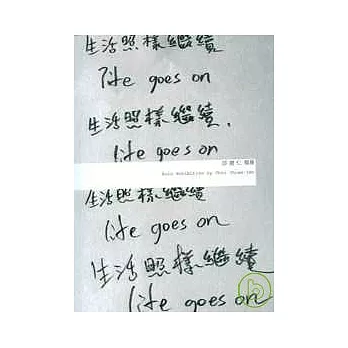 生活照樣繼續
life goes on
生活照樣繼續.
life goes on
個展
Solo Exhibition by
生活照樣繼續
life goes on
生活照樣繼續
life goes on